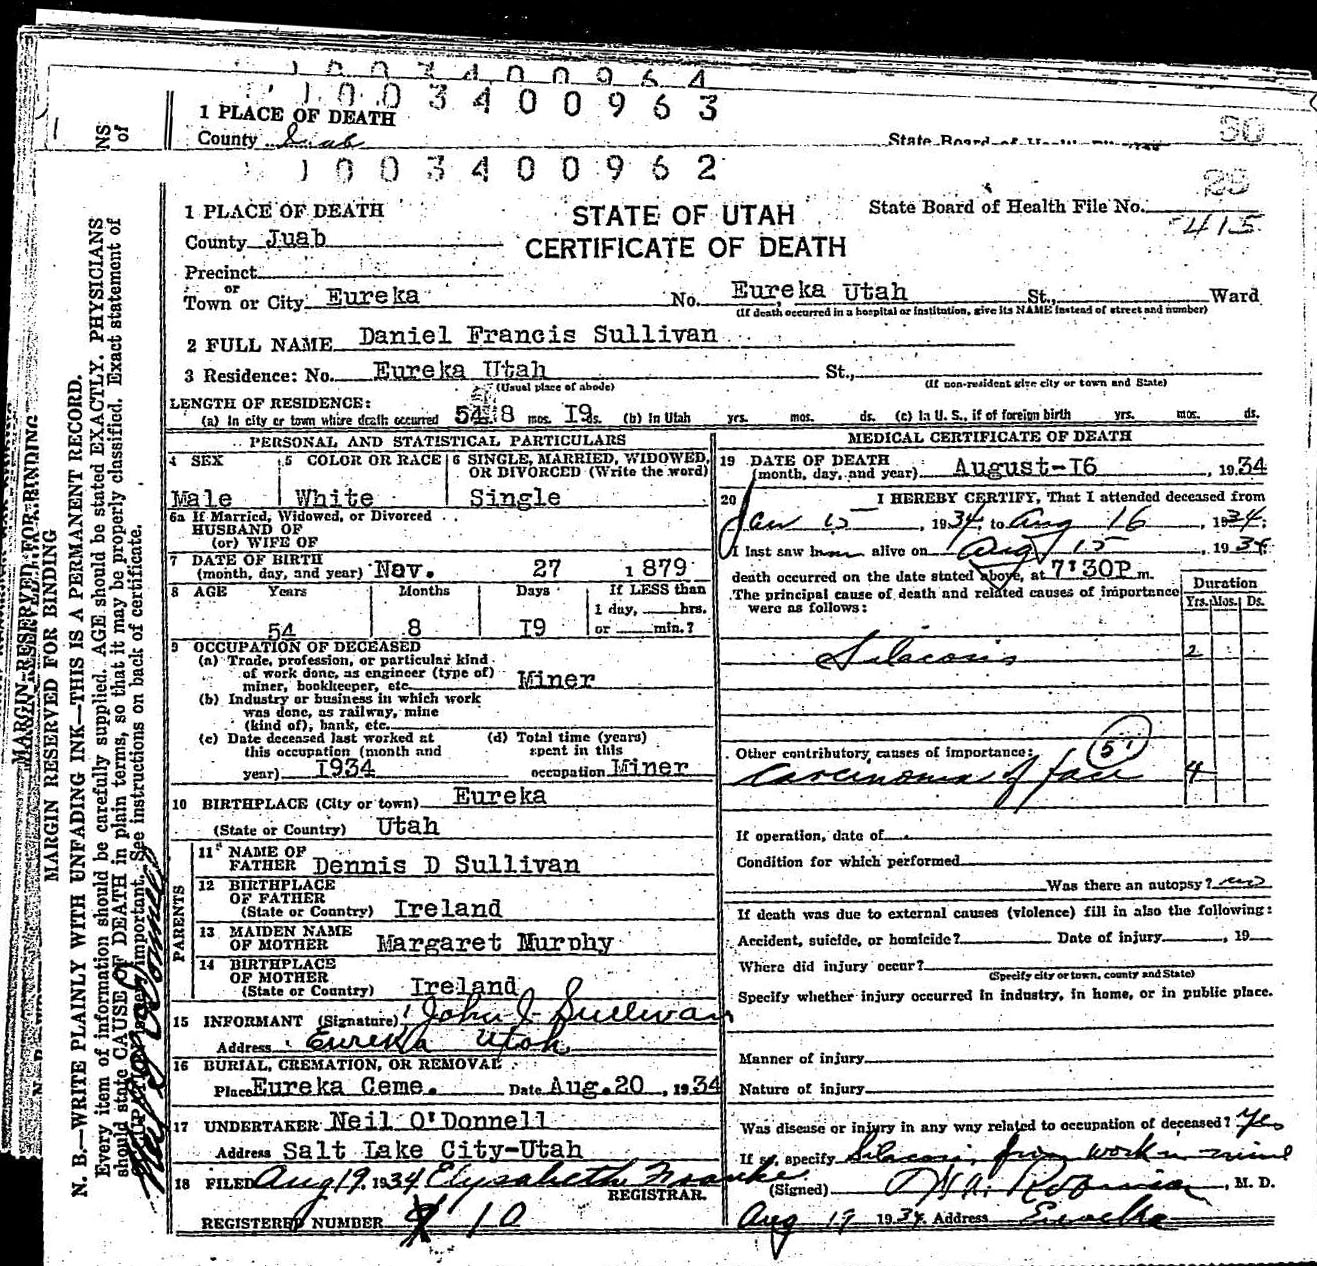 1003400964
1003400963
1 PLACE OF DEATH
County Juab
State Board of Health File No.
30
NS
of
1003400962
29
1 PLACE OF DEATH
STATE OF UTAH
State Board of Health File No.
415
County Juab
CERTIFICATE OF DEATH
Precinct
or
Town or City Eureka No. Eureka Utah St., Ward
(If death occurred in a hospital or institution, give its NAME instead of street and number)
2 FULL NAME Daniel Francis Sullivan
3 Residence: No. Eureka Utah St.,
(Usual place of abode) (If non-resident give city or town and State)
LENGTH OF RESIDENCE:
(a) In city or town where death occurred 54 8 mos. I9 ds. (b) In Utah yrs. mos. ds. (c) In U. S., if of foreign birth yrs. mos. ds.
PERSONAL AND STATISTICAL PARTICULARS
4 SEX 5 COLOR OR RACE 6 SINGLE, MARRIED, WIDOWED,
OR DIVORCED (Write the word)
Male White Single
6a If Married, Widowed, or Divorced
HUSBAND OF
(or) WIFE OF
7 DATE OF BIRTH
(month, day, and year) Nov. 27 1879
8 AGE Years Months Days If LESS than
1 day, hrs.
or min.?
54 8 I9
9 OCCUPATION OF DECEASED
(a) Trade, profession, or particular kind
of work done, as engineer (type of)
miner, bookkeeper, etc. Miner
(b) Industry or business in which work
was done, as railway, mine
(kind of), bank, etc.
(c) Date deceased last worked at (d) Total time (years)
this occupation (month and spent in this
year) I934 occupation Miner
10 BIRTHPLACE (City or town) Eureka
(State or Country) Utah
PARENTS
11 NAME OF
FATHER Dennis D Sullivan
12 BIRTHPLACE
OF FATHER
(State or Country) Ireland
13 MAIDEN NAME
OF MOTHER Margaret Murphy
14 BIRTHPLACE
OF MOTHER
(State or Country) Ireland
15 INFORMANT (Signature) John J. Sullivan
Address Eureka Utah
16 BURIAL, CREMATION, OR REMOVAL
Place Eureka Ceme. Date Aug.20, 1934
17 UNDERTAKER Neil O'Donnell
Address Salt Lake City-Utah
18 FILED Aug 19, 1934 Elysabeth
REGISTRAR.
REGISTERED NUMBER 10
MEDICAL CERTIFICATE OF DEATH
19 DATE OF DEATH
(month, day, and year) August-I6, 1934
20 I HEREBY CERTIFY, That I attended deceased from
Jan 15, 1934, to Aug 16, 1934;
I last saw him alive on Aug 15, 1934
death occurred on the date stated above, at 7:30P m.
The principal cause of death and related causes of importance
were as follows:
Duration
Yrs. Mos. Ds.
Silacosis 2
Other contributory causes of importance: 51
Carcinoma of face 4
If operation, date of
Condition for which performed
Was there an autopsy? no
If death was due to external causes (violence) fill in also the following:
Accident, suicide, or homicide? Date of injury, 19
Where did injury occur?
(Specify city or town, county and State)
Specify whether injury occurred in industry, in home, or in public place.
Manner of injury
Nature of injury
Was disease or injury in any way related to occupation of deceased? Yes
If so, specify Silacosis, from work in mine
(Signed) Robinson, M. D.
Aug 17 1934 Address Eureka
MARGIN RESERVED FOR BINDING
MARGIN RESERVED FOR BINDING
N. B.—WRITE PLAINLY WITH UNFADING INK—THIS IS A PERMANENT RECORD.
Every item of information should be carefully supplied. AGE should be stated EXACTLY. PHYSICIANS
should state CAUSE OF DEATH in plain terms, so that it may be properly classified. Exact statement of
OCCUPATION is very important. See instructions on back of certificate.
Neil O'Donnell